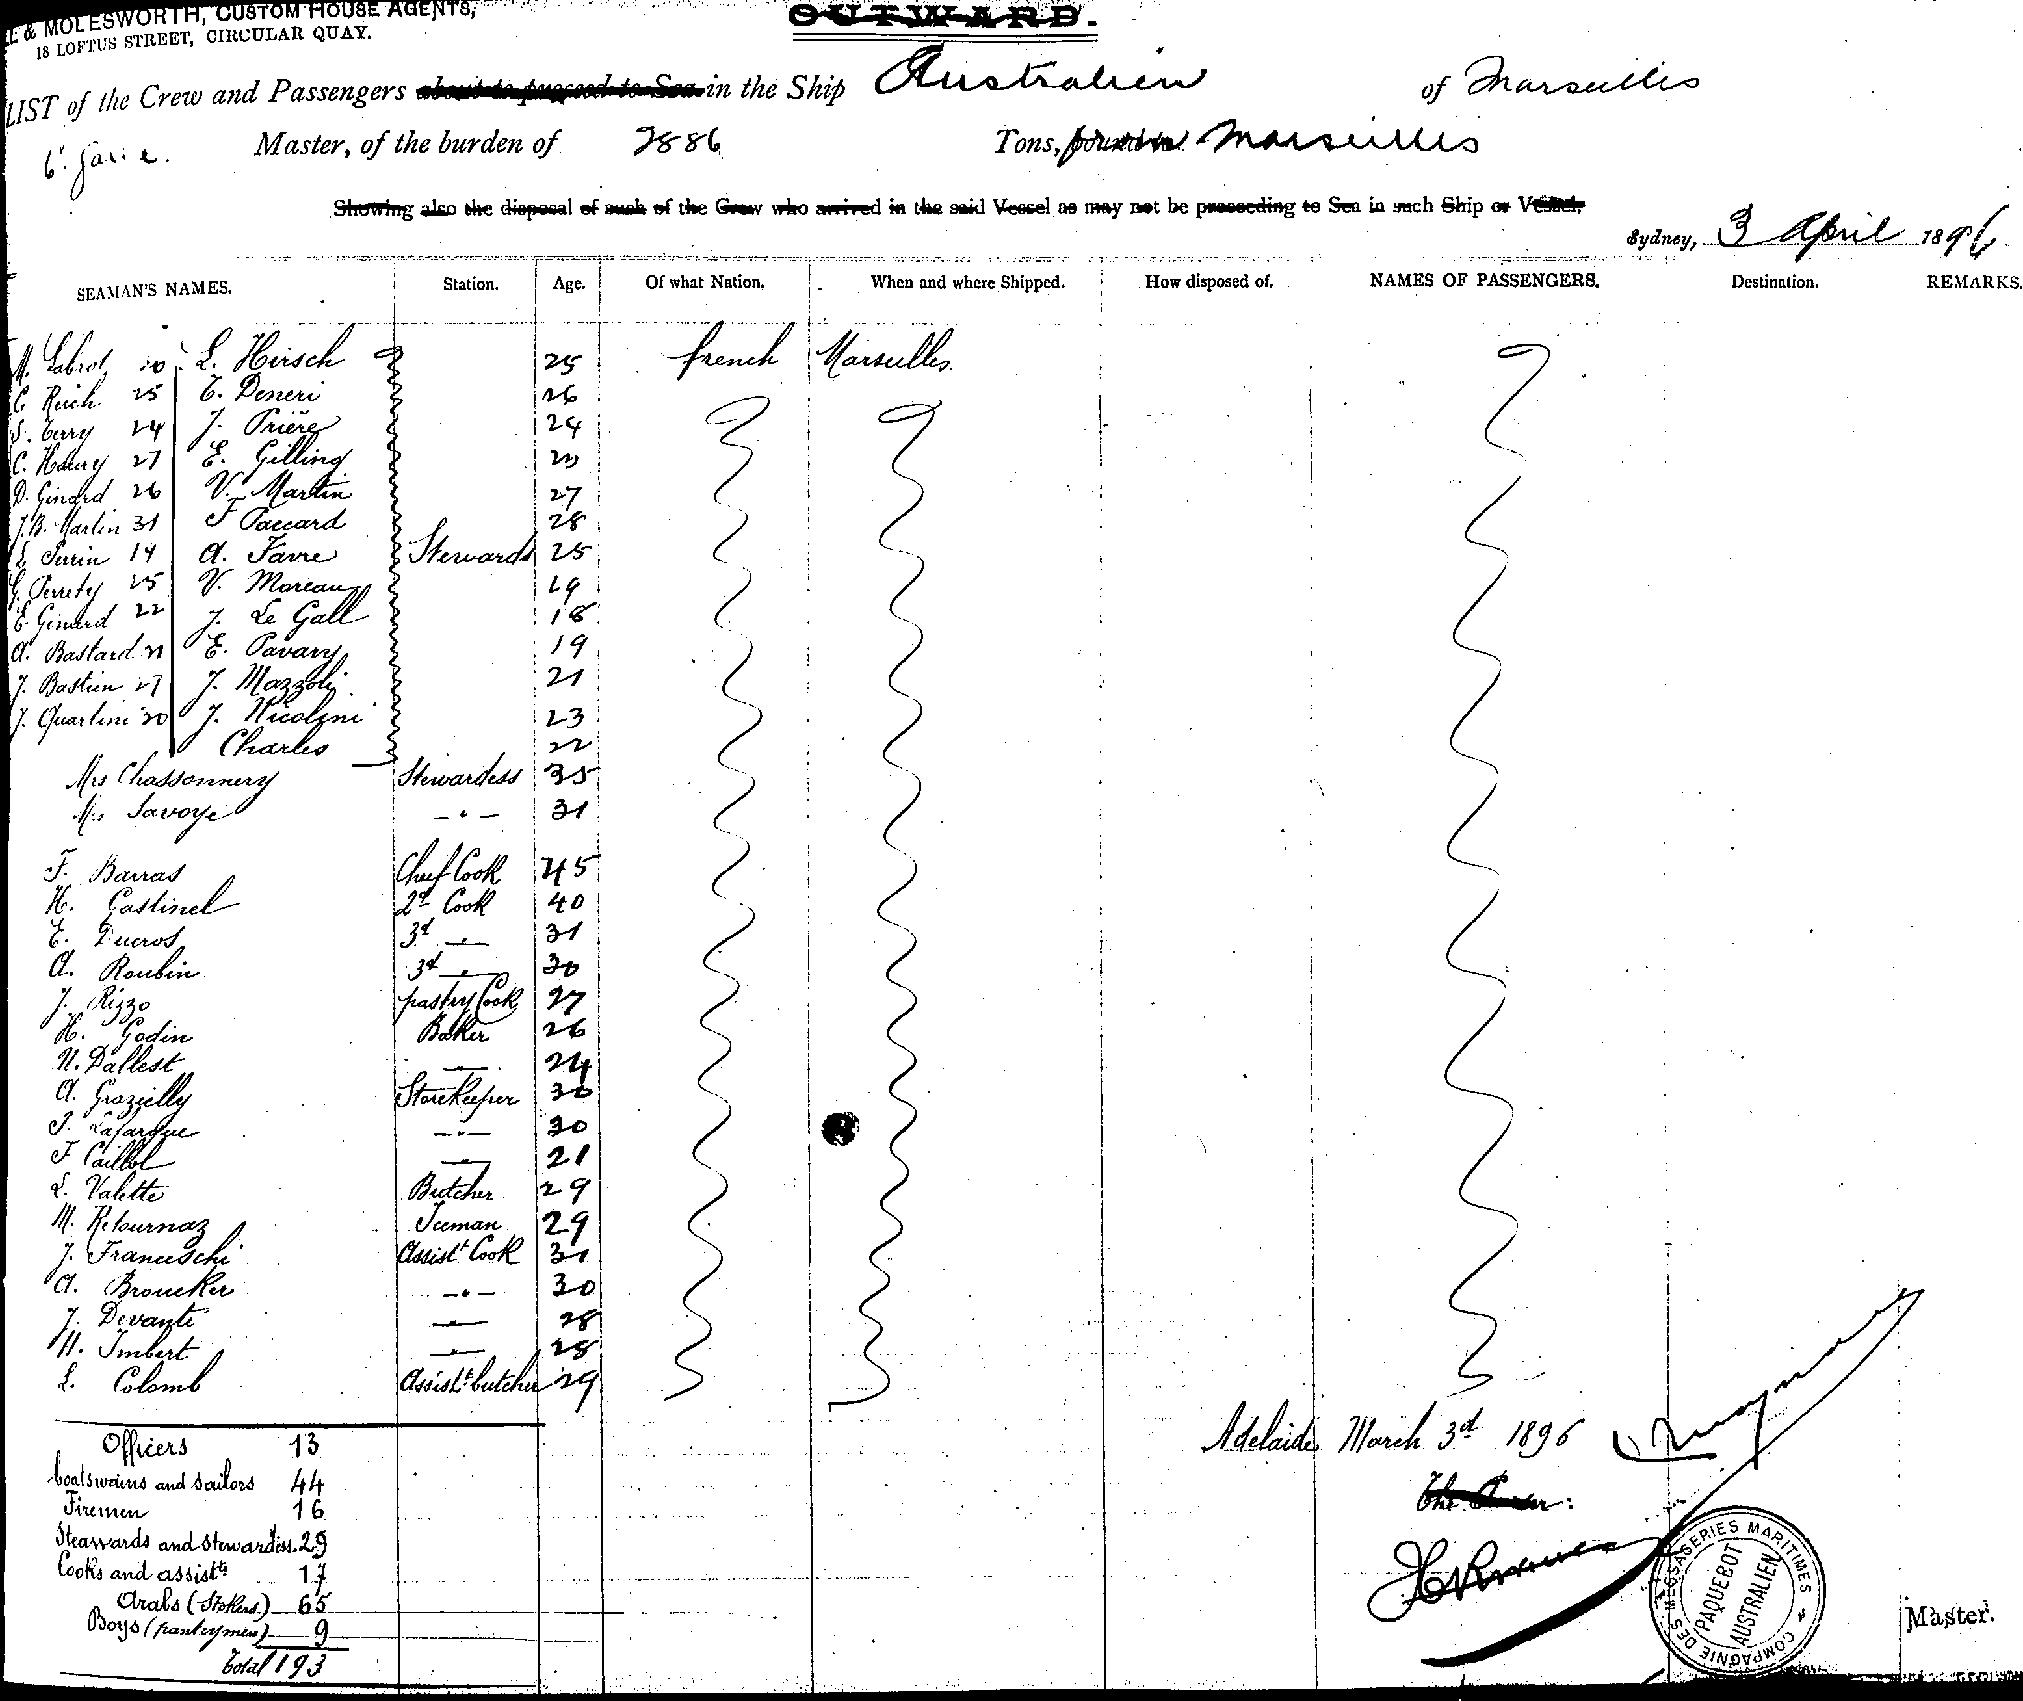 & MOLESWORTH, CUSTOM HOUSE AGENTS,
18 LOFTUS STREET, CIRCULAR QUAY.
OUTWARD.
LIST of the Crew and Passengers about to proceed to Sea in the Ship Australien of Marseilles
Master, of the burden of 2886 Tons, from Marseilles
Showing also the disposal of such of the Crew who arrived in the said Vessel as may not be proceeding to Sea in such Ship or Vessel,
Sydney, 3 April 1896
SEAMAN'S NAMES. Station. Age. Of what Nation. When and where Shipped. How disposed of. NAMES OF PASSENGERS. Destination. REMARKS.
M. Labrot 20 L. Hirsch 25 french Marseilles
C. Reich 25 E. Deneri 26
S. Terry 24 J. Prière 24
C. Henry 27 E. Gilling
D. Ginard 26 V. Martin 27
J. B. Martin 31 F Paccard 28
L. Perrin 19 A. Favre Stewards 25
G. Perrety 25 V. Moreau 19
E. Ginard 22 J. Le Gall 18
A. Bastard 21 E. Pavary 19
J. Bastien 27 J. Mazzoli 21
J. Quartini 20 J. Nicolini 23
Charles 22
Mrs Chassonnery Stewardess 35
Mrs Savoye -"- 31
F. Barras Chief Cook 45
H. Gastinel 2d Cook 40
E. Ducros 3d -"- 31
A. Roubin 3d -"- 30
J. Rizzo pastry Cook 27
H. Godin Baker 26
N. Dallest -"- 24
A. Grazielly Storekeeper 30
J. Lafargue -"- 30
F Caillol -"- 21
L. Valette Butcher 29
M. Retournaz Iceman 29
J. Franceschi Assist Cook 31
A. Broucker -"- 30
J. Devante -"- 28
H. Imbert -"- 28
L. Colomb Assist butcher 29
Officers 13
boatswains and sailors 44
Firemen 16
Steawards and stewardess. 29
Cooks and assists 17
Arabs (Stokers) 65
Boys (pantrymen) 9
Total 193
Adelaide March 3d 1896
COMPAGNIE DES MESSAGERIES MARITIMES
PAQUEBOT
AUSTRALIEN
Master.